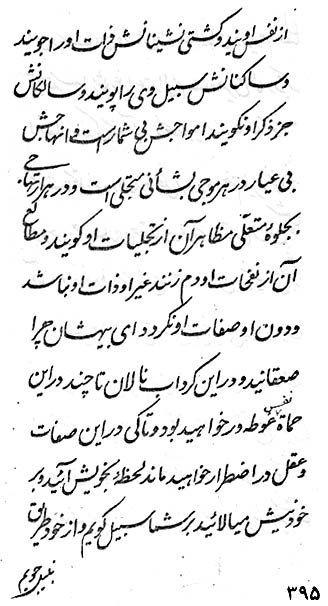 از نفس اویند و کشتی نشینانش فرات او را جویند
و ساکنانش سبیل وی را پویند و سالکانش
جز ذکر او نگویند امواجش بی شمار است و انهاجش
بی عیار در هر موجی بشأنی متجلی است و در هر ارتیاحی
بجلوهٔ متعلّی مظاهر آن از تجلیات او گویند و مطالع
آن از نفحات او دم زنند غیر او ذات او نباشد
و دون او صفات او نگردد ای بیهشان چرا
صعقانید و در این گرداب نالان تا چند در این
حمأة نفس غوطه در خواهید بود و تا کی در این صفات
و عقل در اضطرار خواهید ماند لحظهٔ بخویش آئید و بر
خود نیش میالائید بر شما سبیل گویم و از خود طریق
۳۹۵